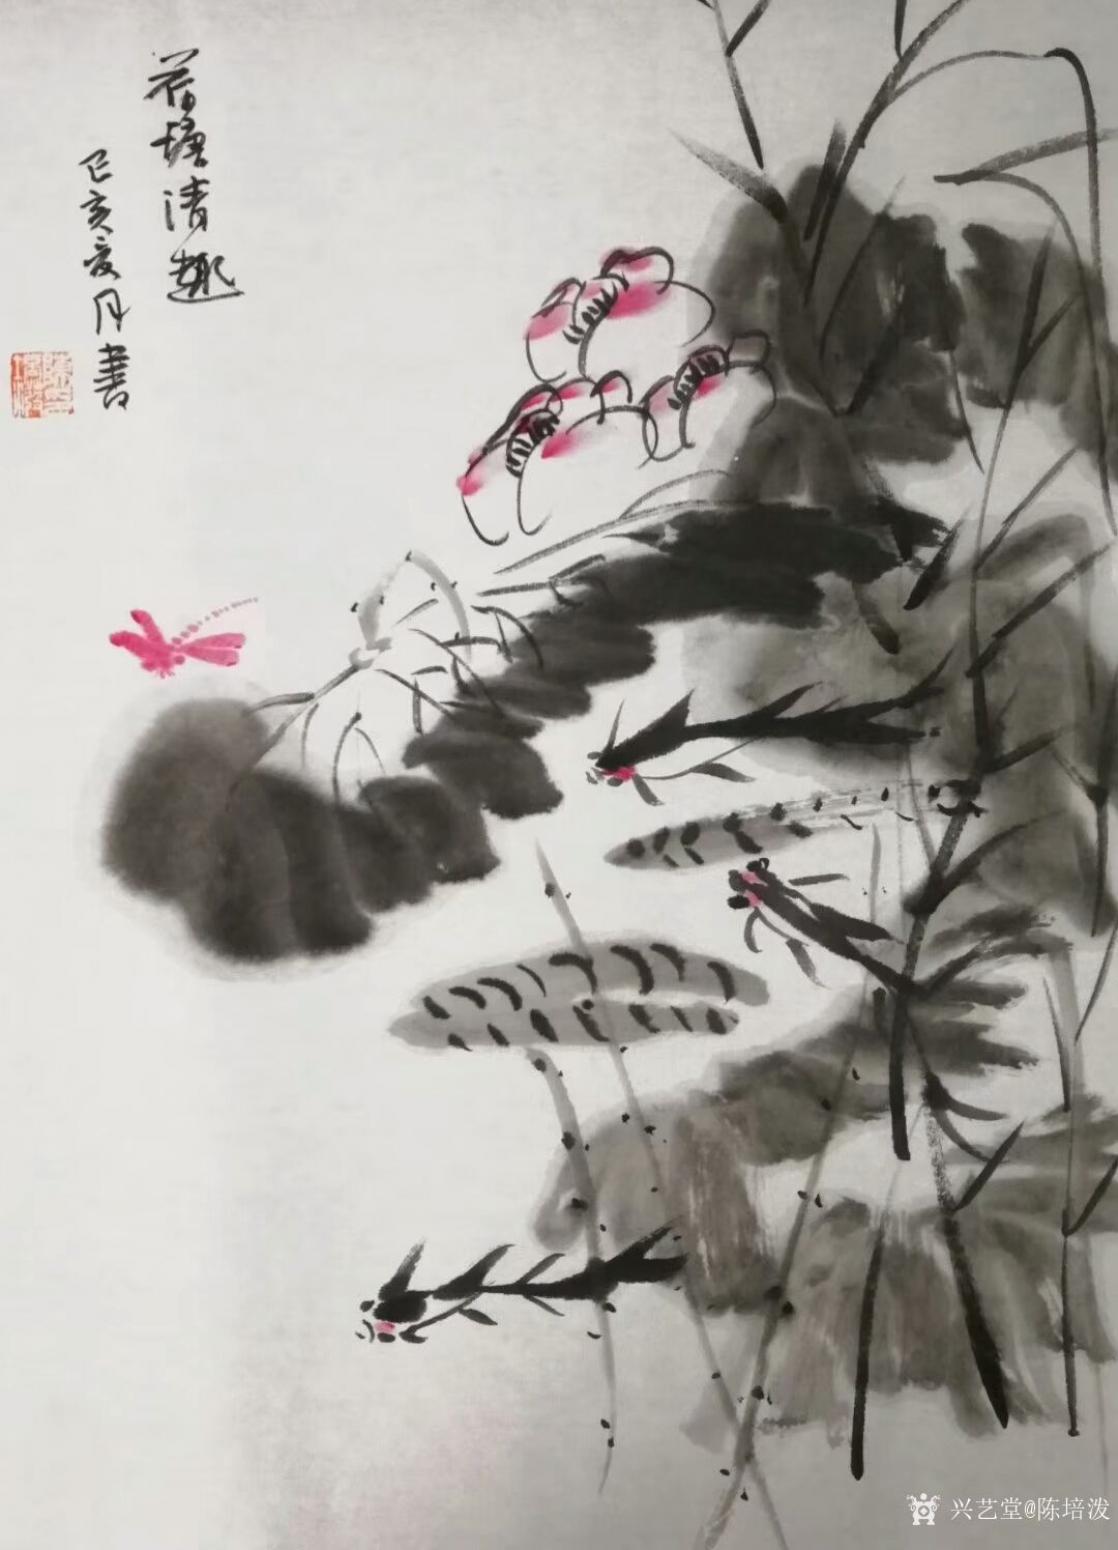 荷塘清趣
己亥夏月書
兴艺堂@陈培泼